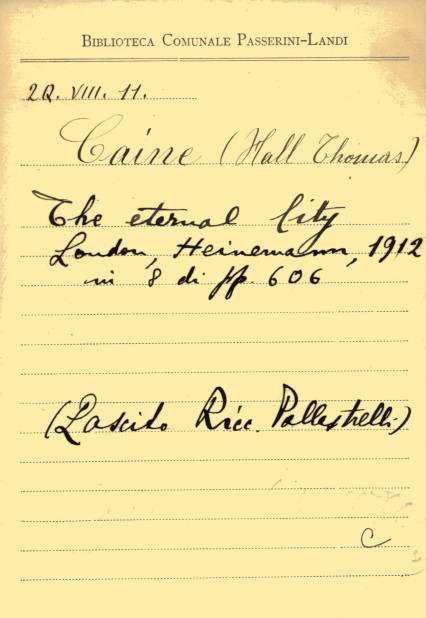 BIBLIOTECA COMUNALE PASSERINI-LANDI
2Q. VIII. 11.
Caine (Hall Thomas)
The eternal City
London, Heinemann, 1912
in 8 di pp. 606
(Lascito Ricc. Pallastrelli)
C